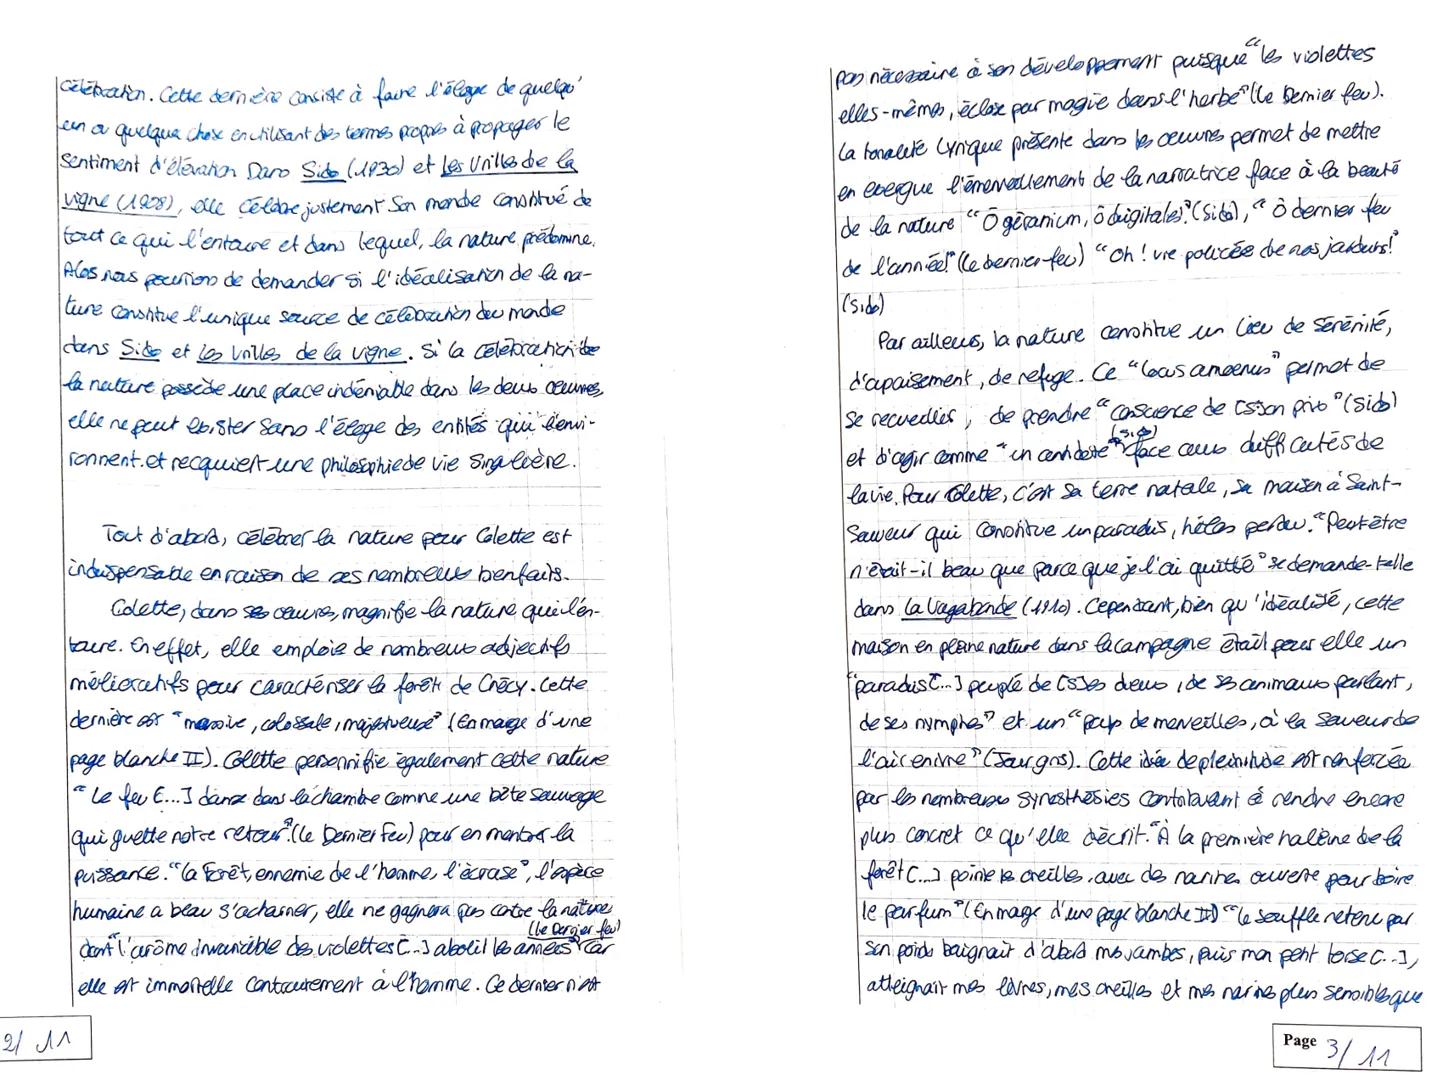 célébration. Cette dernière consiste à faire l'éloge de quelqu'
un ou quelque chose en utilisant des termes propres à propager le
sentiment d'élévation. Dans Sido (1930) et Les Vrilles de la
vigne (1908), elle célèbre justement son monde constitué de
tout ce qui l'entoure et dans lequel, la nature prédomine.
Alors nous pourrions de demander si l'idéalisation de la na-
ture constitue l'unique source de célébration du monde
dans Sido et Les Vrilles de la vigne. Si la célébration de
la nature possède une place indéniable dans les deux œuvres,
elle ne peut exister sans l'éloge des entités qui l'envi-
ronnent et recquiert une philosophie de vie singulière.
Tout d'abord, célébrer la nature pour Colette est
indispensable en raison de ses nombreux bienfaits.
Colette, dans ses œuvres, magnifie la nature qui l'en-
toure. En effet, elle emploie de nombreux adjectifs
mélioratifs pour caractériser la forêt de Crécy. Cette
dernière est "massive, colossale, majestueuse" (En marge d'une
page blanche II). Colette personnifie également cette nature
"Le feu [...] danse dans la chambre comme une bête sauvage
qui guette notre retour" (Le Dernier Feu) pour en montrer la
puissance. "La Forêt, ennemie de l'homme, l'écrase", l'espèce
humaine a beau s'acharner, elle ne gagnera pas contre la nature
(Le Dernier feu)
dont "l'arôme invariable des violettes [...] abolit les années" car
elle est immortelle contrairement à l'homme. Ce dernier n'est
2/ 11
pas nécessaire à son développement puisque "les violettes
elles-mêmes, écloses par magie dans l'herbe" (Le Dernier feu).
La tonalité lyrique présente dans les œuvres permet de mettre
en exergue l'émerveillement de la narratrice face à la beauté
de la nature "Ô géranium, ô digitale!" (Sido), "Ô dernier feu
de l'année!" (Le dernier feu) "Oh! vie policée de nos jardins!"
(Sido)
Par ailleurs, la nature constitue un lieu de sérénité,
d'apaisement, de refuge. Ce "locus amoenus" permet de
se recueillir, de prendre "conscience de [s]on prix" (Sido)
et d'agir comme "un antidote" (Sido) face aux difficultés de
la vie. Pour Colette, c'est sa terre natale, sa maison à Saint-
Sauveur qui constitue un paradis, hélas perdu. "Peut-être
n'était-il beau que parce que je l'ai quitté" se demande-t-elle
dans La Vagabonde (1910). Cependant, bien qu'idéalisé, cette
maison en pleine nature dans la campagne était pour elle un
"paradis [...] peuplé de [s]es dieux, de ses animaux parlant,
de ses nymphes" et un "pays de merveilles, où la saveur de
l'air enivre" (Jour gris). Cette idée de plénitude est renforcée
par les nombreuses synesthésies contribuant à rendre encore
plus concret ce qu'elle décrit. "À la première haleine de la
forêt [...] pointe les oreilles, avec des narines ouverte pour boire
le parfum" (En marge d'une page blanche II) "Le souffle retenu par
son poids baignait d'abord mes jambes, puis mon petit torse [...],
atteignait mes lèvres, mes oreilles et mes narines plus sensibles que
Page 3/ 11